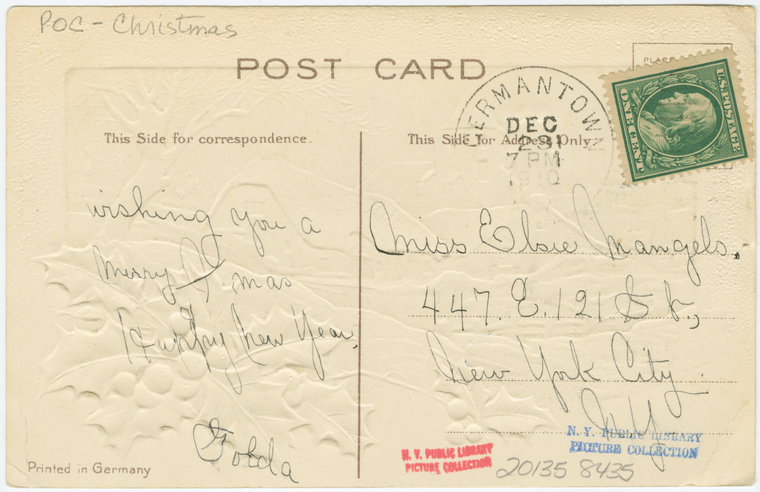 POC - Christmas
POST CARD
PLACE
GERMANTOWN
DEC
7 PM
1910
U.S. POSTAGE
ONE CENT
This Side for correspondence.
This Side for Address Only.
wishing you a
Merry Xmas
Happy New Year.
Golda
Miss Elsie Mangels.
447. E. 121 St.,
New York City
N.Y.
Printed in Germany
N. Y. PUBLIC LIBRARY
PICTURE COLLECTION
N. Y. PUBLIC LIBRARY
PICTURE COLLECTION
20135 8435